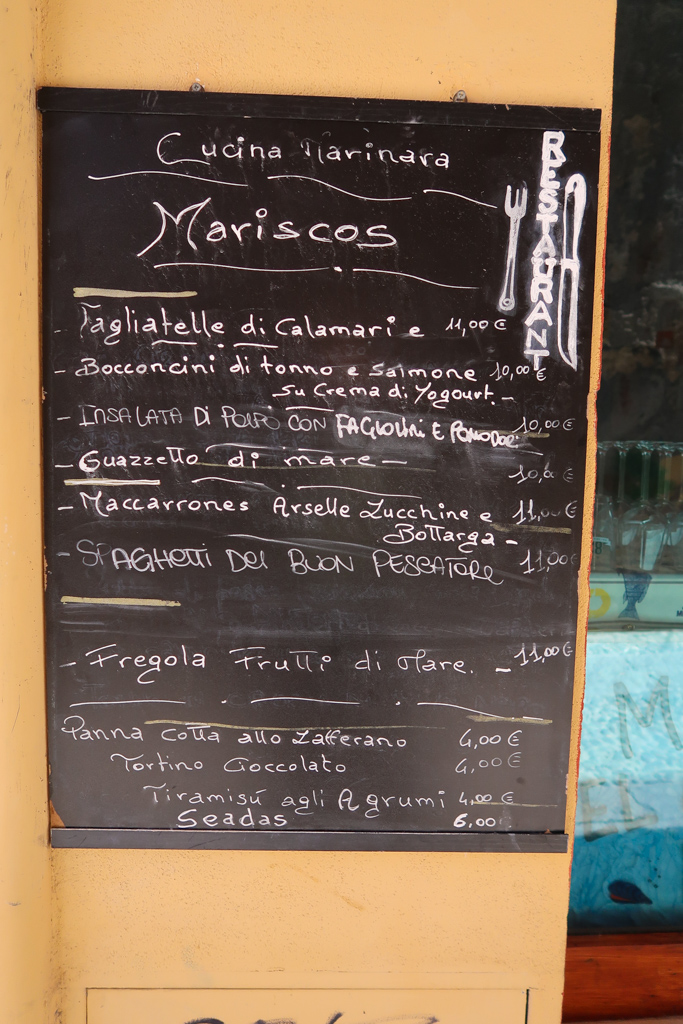 Cucina Marinara
Mariscos
RESTAURANT
- Tagliatelle di Calamari e 11,00 €
- Bocconcini di tonno e Salmone 10,00 €
su Crema di Yogourt. -
- INSALATA DI POLPO CON FAGIOLINI E POMODORI 10,00 €
- Guazzetto di mare - 10,00 €
- Maccarrones Arselle Zucchine e 11,00 €
Bottarga -
- SPAGHETTI DEL BUON PESCATORE 11,00 €
- Fregola Frutti di Mare. - 11,00 €
Panna cotta allo Zafferano 4,00 €
Tortino Cioccolato 4,00 €
Tiramisú agli Agrumi 4,00 €
Seadas 6,00